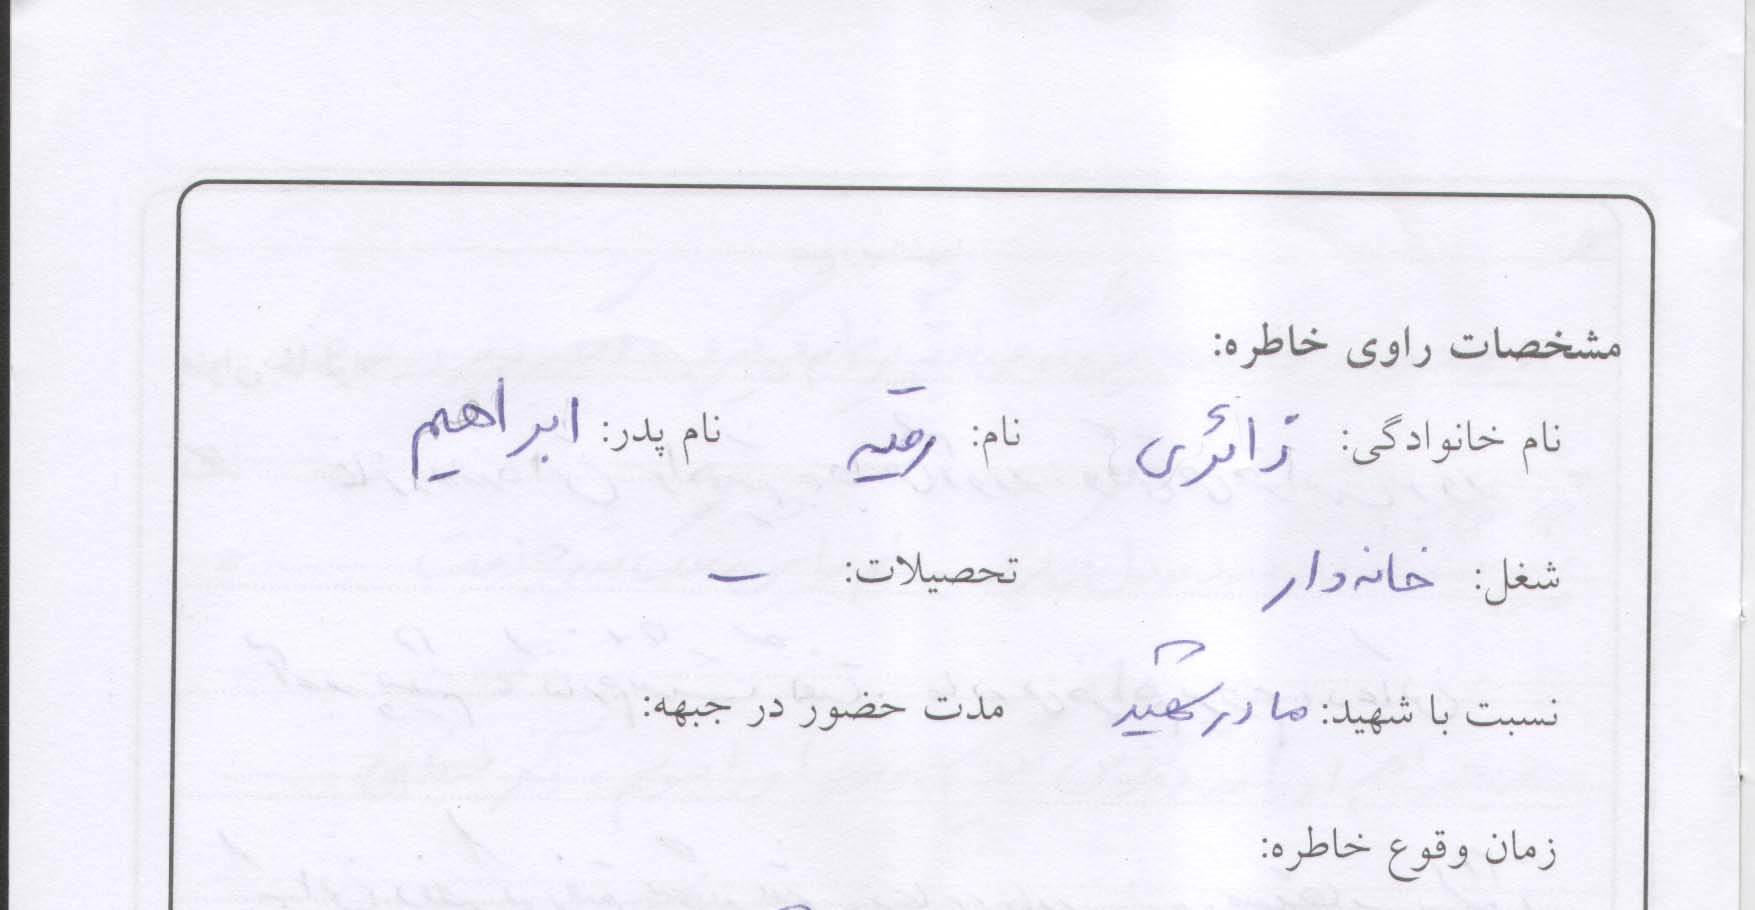 مشخصات راوی خاطره:
نام خانوادگی: زائری نام: رقیه نام پدر: ابراهیم
شغل: خانه دار تحصیلات: -
نسبت با شهید: مادر شهید مدت حضور در جبهه:
زمان وقوع خاطره: